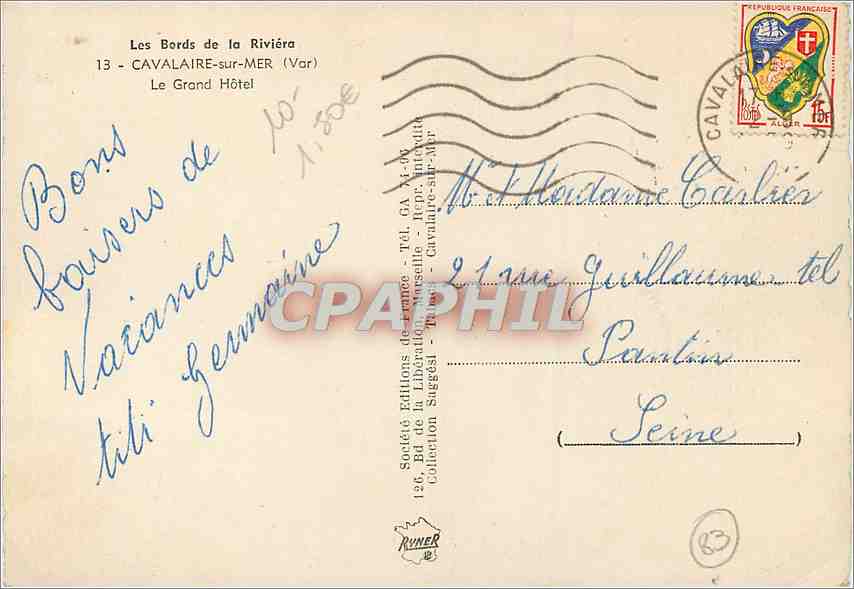 Les Bords de la Riviéra
13 - CAVALAIRE-sur-MER (Var)
Le Grand Hôtel
10-
1,80€
Bons
baisers de
Vacances
titi Germaine
Société Editions de France - Tél. GA 74-96
126, Bd de la Libération, Marseille - Repr. interdite
Collection Saggési - Tabacs - Cavalaire-sur-Mer
RYNER
CPAPHIL
REPUBLIQUE FRANÇAISE
POSTES
ALGER
15F
CAVALAI
Mr et Madame Carlier
21 rue Guillaume tel
Pantin
(Seine)
83